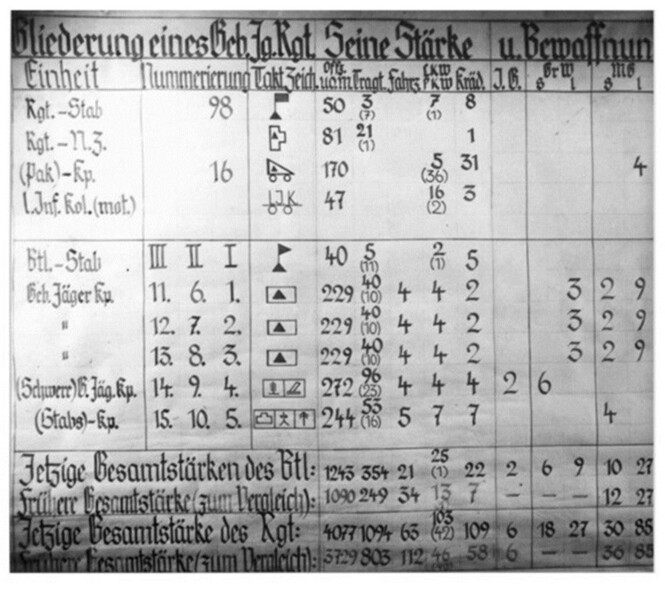 Gliederung eines Geb. Jg. Rgt. Seine Stärke u. Bewaffnun
Einheit Nummerierung Takt. Zeich. Offz. u. Om. Tragt. Fahrz. LKW PKW Kräd. J. G. Gr W s l MG s l
Rgt.-Stab 98 50 3 (7) 7 (1) 8
Rgt.-N.Z. 81 21 (1) 1
(Pak)-Kp. 16 170 5 (36) 31 4
l. Inf. Kol. (mot.) IJK 47 16 (2) 3
Btl.-Stab III II I 40 5 (11) 2 (1) 5
Geb. Jäger Kp. 11. 6. 1. 229 40 (10) 4 4 2 3 2 9
" 12. 7. 2. 229 40 (10) 4 4 2 3 2 9
" 13. 8. 3. 229 40 (10) 4 4 2 3 2 9
(Schwere) G. Jäg. Kp. 14. 9. 4. 272 96 (23) 4 4 4 2 6
(Stabs)-Kp. 15. 10. 5. 244 53 (16) 5 7 7 4
Jetzige Gesamtstärken des Btl: 1243 354 21 25 (1) 22 2 6 9 10 27
Frühere Gesamtstärke (zum Vergleich): 1090 249 34 13 7 – – – 12 27
Jetzige Gesamtstärke des Rgt: 4077 1094 63 103 (42) 109 6 18 27 30 85
Frühere Gesamtstärke (zum Vergleich): 3729 803 112 46 58 6 – – 36 85